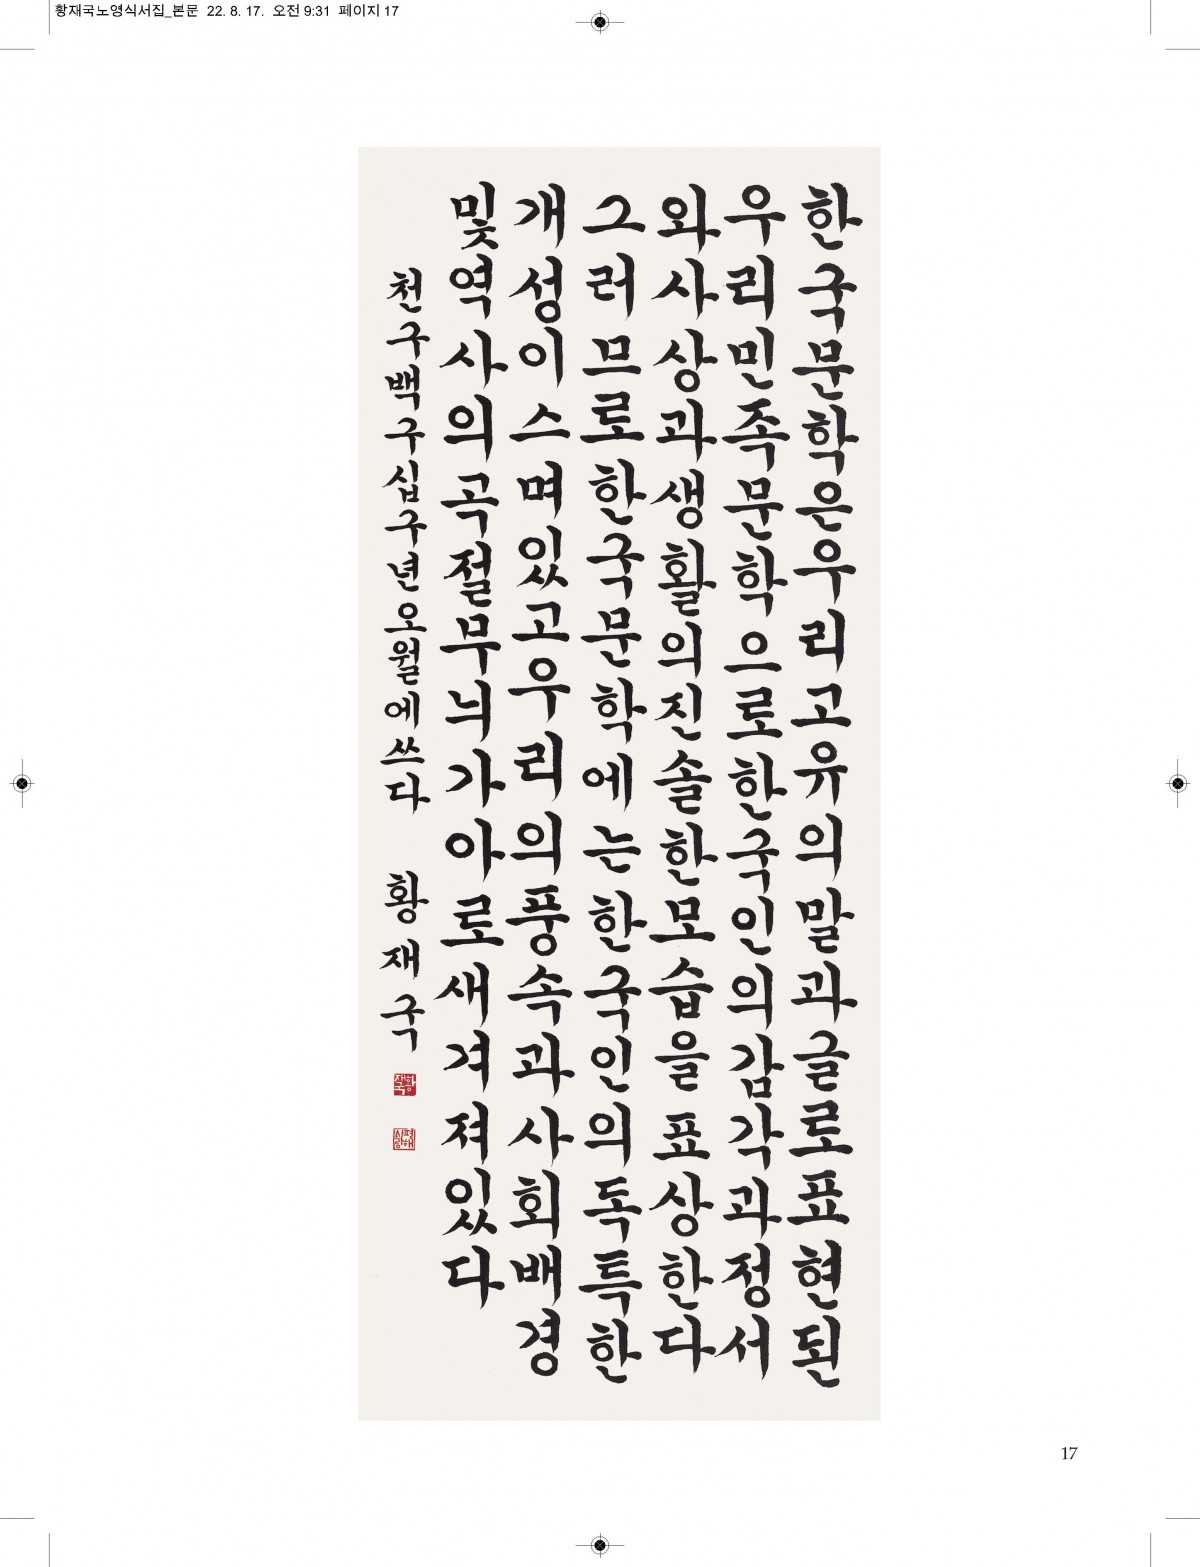 황재국노영식서집_본문 22. 8. 17. 오전 9:31 페이지 17
한국문학은우리고유의말과글로표현된
우리민족문학으로한국인의감각과정서
와사상과생활의진솔한모습을표상한다
그러므로한국문학에는한국인의독특한
개성이스며있고우리의풍속과사회배경
및역사의곡절무늬가아로새겨져있다
천구백구십구년오월에쓰다 황재국
17